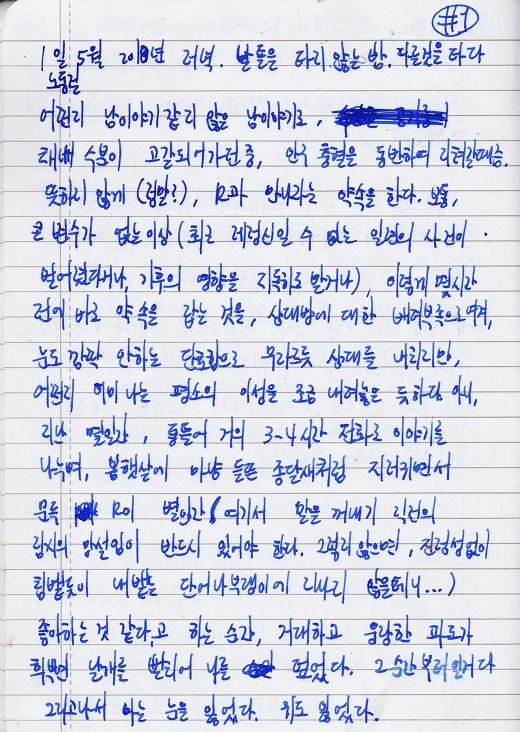 #1
1일 5월 2010년 저녁. 발 들은 타지 않는 밤. 다른것을 타다
노동절
어쩐지 남이야기 같지 않은 남이야기로,
체내 수분이 고갈되어가던 중, 안구 충혈을 동반하여 지쳐갈때쯤.
뜻하지 않게 (정말?), R과 만나자는 약속을 한다. 보통,
큰 변수가 없는이상 (최근 예정신일 수 없는 일련의 사건이
벌어졌다거나, 기후의 영향을 지독히도 받거나), 이렇게 몇시간
전에 바로 약속을 잡는 것을, 상대방에 대한 배려부족으로 여겨,
눈도 깜짝 안하는 단호함으로 무리로듯 상대를 내치지만,
어쩐지 이미 나는 평소의 이성을 조금 내려놓은 듯하다. 아니,
지난 몇일간, 통틀어 거의 3-4시간 전화로 이야기를
나누며, 봄햇살에 마냥 들뜬 종달새처럼 지저귀면서
문득 R이 별안간 (여기서 말을 꺼내기 직전의
잠시의 망설임이 반드시 있어야 한다. 그렇지 않으면, 진정성없이
팁밷듯이 내뱉는 단어나부랭이에 지나지 않을테니...)
좋아하는 것 같다,고 하는 순간, 거대하고 웅장한 파도가
희뿌연 날개를 펼치어 나를 덮었다. 그 순간부터 일거다
그리고나서 나는 눈을 잃었다. 귀도 잃었다.